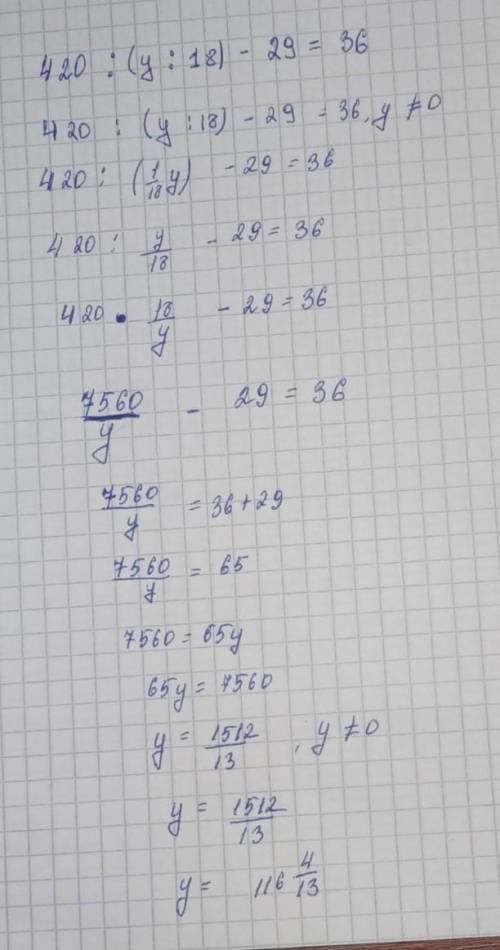 420 : (y : 18) - 29 = 36
420 : (y : 18) - 29 = 36, y ≠ 0
420 : (1/18 y) - 29 = 36
420 : y/18 - 29 = 36
420 • 18/y - 29 = 36
7560/y - 29 = 36
7560/y = 36 + 29
7560/y = 65
7560 = 65y
65y = 7560
y = 1512/13, y ≠ 0
y = 1512/13
y = 116 4/13